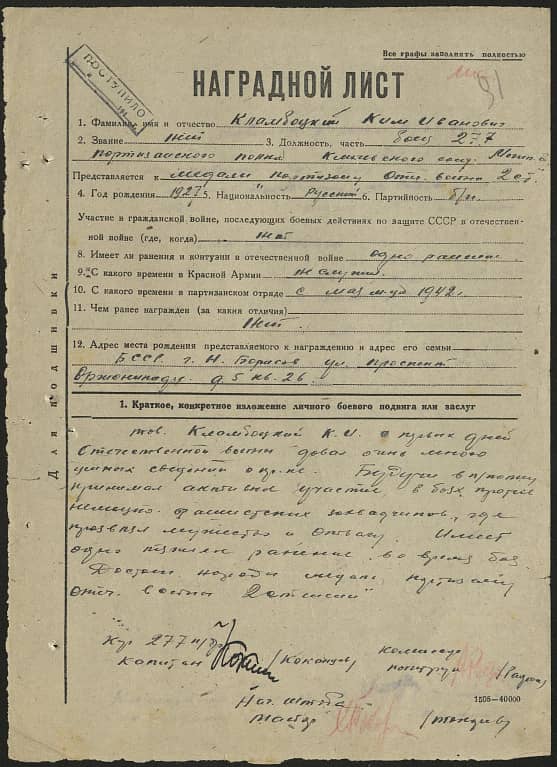 Все графы заполнять полностью
91
ПОСТУПИЛО
НАГРАДНОЙ ЛИСТ
1. Фамилия, имя и отчество Кламбоцкий Ким Иванович
2. Звание нет 3. Должность, часть боец 277
партизанского полка
Представляется к медали партизану Отеч. войны 2 ст.
4. Год рождения 1927 5. Национальность Русский 6. Партийность б/п
Участие в гражданской войне, последующих боевых действиях по защите СССР в отечествен-
ной войне (где, когда) нет
8. Имеет ли ранения и контузии в отечественной войне одно ранение
9. С какого времени в Красной Армии
10. С какого времени в партизанском отряде с мая м-ца 1942 г.
11. Чем ранее награжден (за какия отличия)
Нет.
12. Адрес места рождения представляемого к награждению и адрес его семьи
БССР г. Н. Борисов ул. проспект
Оржоникидзе д. 5 кв. 26.
Для подшивки
1. Краткое, конкретное изложение личного боевого подвига или заслуг
тов. Кламбоцкий К.И. с первых дней
Отечественной войны давал очень много
ценных сведений о пр-ке. Будучи в п/полку
принимал активное участие в боях против
немецко-фашистских захватчиков, где
проявил мужество и отвагу. Имеет
одно ранение во время боя.
Достоин награды медаль „партизану
отеч. войны 2 степени"
277 п/п
капитан
командир
Нач. штаба
майор
1505-40000